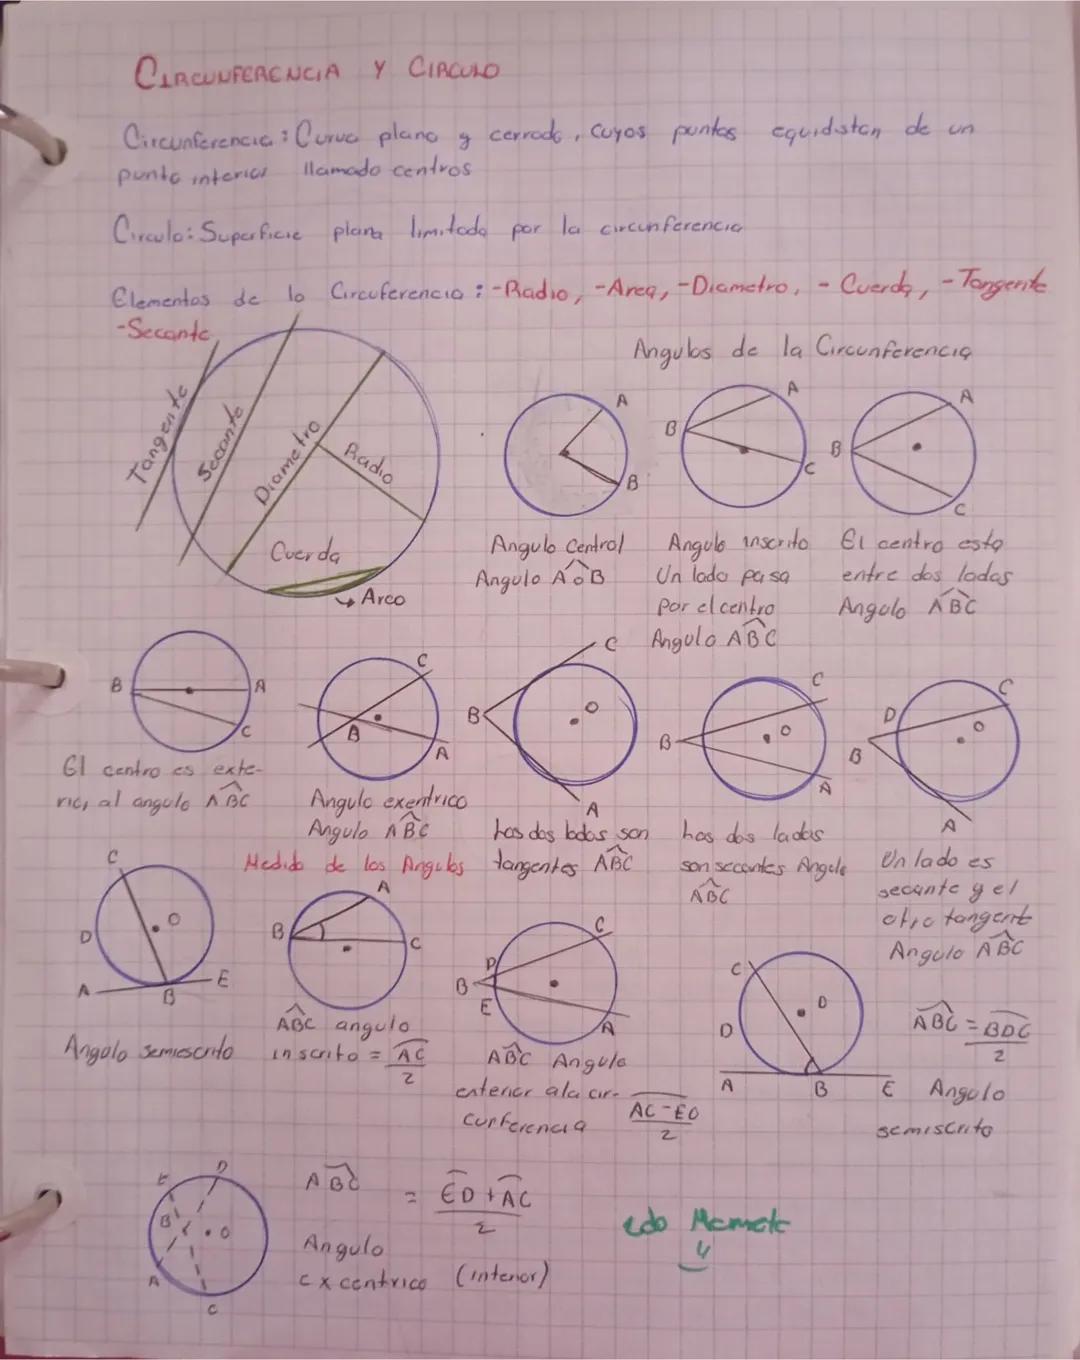 CIRCUNFERENCIA Y CIRCULO
Circunferencia: Curva plana y cerrada, cuyos puntos equidistan de un
punto interior llamado centros
Circulo: Superficie plana limitada por la circunferencia
Elementos de la Circuferencia: -Radio, -Area, -Diametro, - Cuerda, -Tangente
-Secante
Angulos de la Circunferencia
Tangente
Secante
Diametro
Radio
Cuerda
→ Arco
A
B
Angulo Central
Angulo AOB
A
B
C
Angulo inscrito
Un lado pasa
por el centro
Angulo ABC
A
B
C
El centro esta
entre dos lados
Angulo ABC
B
A
C
El centro es exte-
rior al angulo ABC
C
B
A
Angulo exentrico
Angulo ABC
C
B
O
A
Los dos lados son
tangentes ABC
C
B
O
A
Los dos lados
son secantes Angulo
ABC
C
D
B
O
A
Un lado es
secante y el
otro tangent
Angulo ABC
Medida de los Angulos
C
O
D
A
B
E
Angulo semiescrito
A
B
C
ABC angulo
inscrito = AC
2
C
D
B
E
A
ABC Angulo
exterior a la cir-
cunferencia
AC - ED
2
C
O
D
A
B
E
ABC = BDC
2
Angulo
semiscrito
E
D
B
O
A
C
ABC = ED + AC
2
Angulo
excentrico (interior)